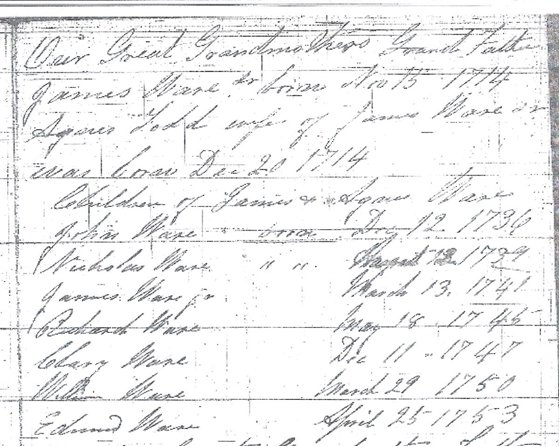 Our Great Grandmothers Grand Father
James Ware Sr born Nov 15 1714
Agnes Todd wife of James Ware Sr
was born Dec 20 1714
Children of James & Agnes Ware
John Ware born Dec 12 1736
Nicholas Ware " " August 12 1739
James Ware jr March 13 1741
Richard Ware May 18 - 1745
Clary Ware Dec 11 - 1747
William Ware March 29 1750
Edmund Ware April 25 1753